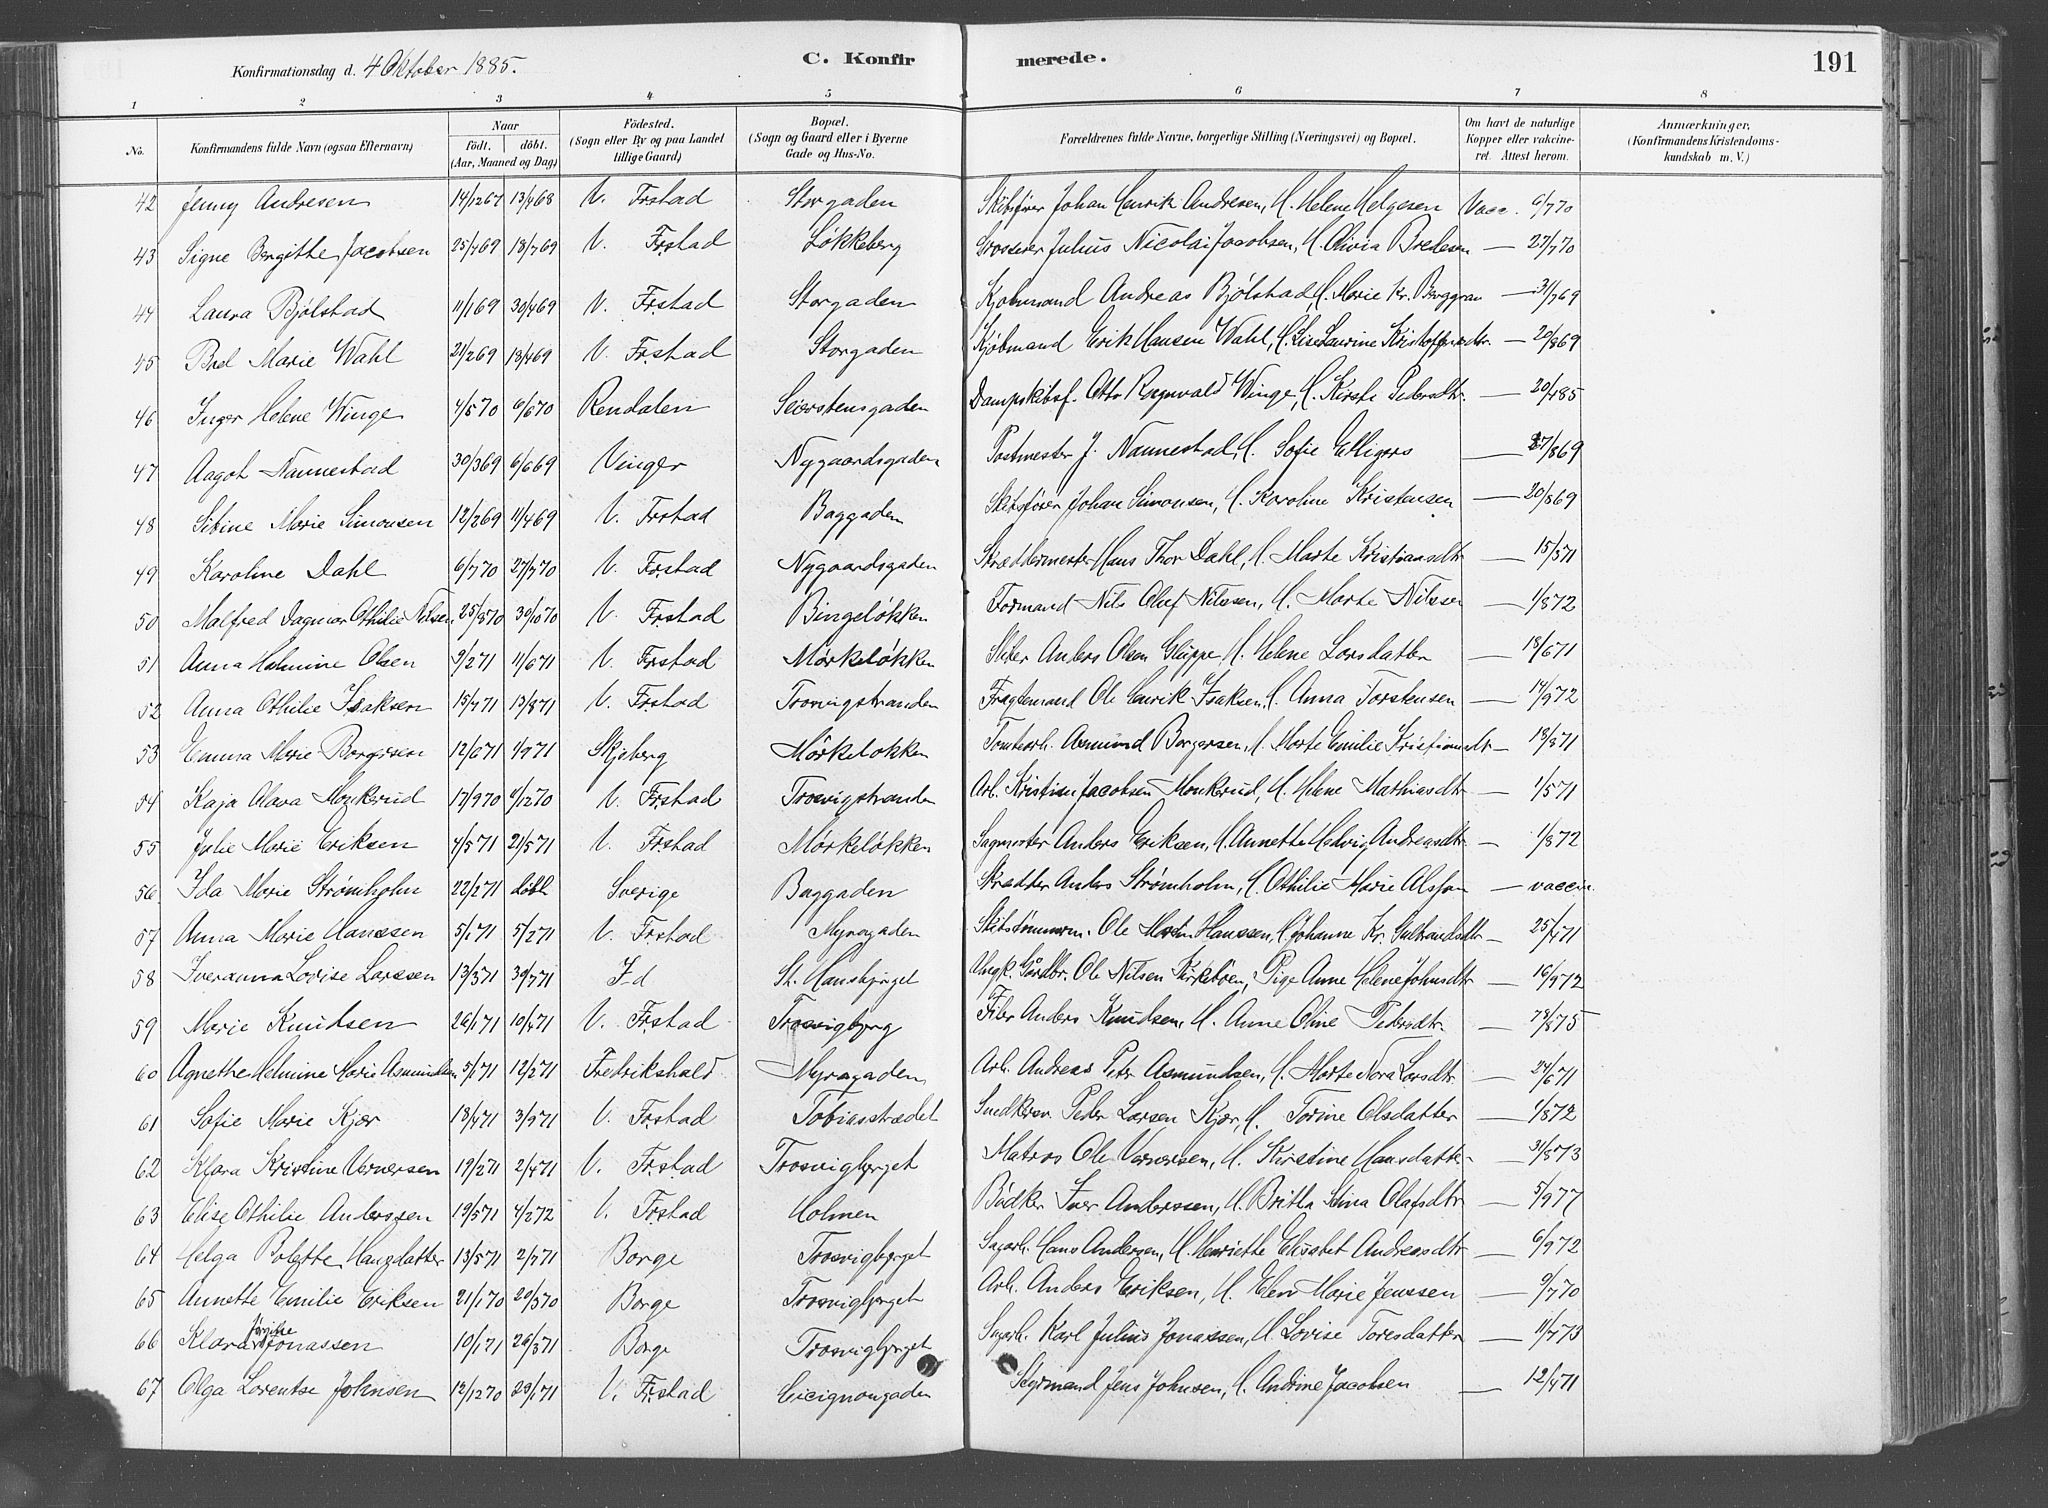 Konfirmationsdag d. 4 Oktober 1885. C. Konfirmerede. 191
1 2 3 4 5 6 7 8
No. Konfirmandens fulde Navn (ogsaa Efternavn) Naar født. døbt. (Aar, Maaned og Dag) Fødested. (Sogn eller By og paa Landet tillige Gaard) Bopæl. (Sogn og Gaard eller i Byerne Gade og Hus-No. Forældrenes fulde Navne, borgerlige Stilling (Næringsvei) og Bopæl. Om havt de naturlige Kopper eller vakcineret. Attest herom. Anmærkninger, (Konfirmandens Kristendomskundskab m. V.)
42 Jenny Andresen 14/12 67 13/4 68 V. Frstad Storgaden Skibsfører Johan Henrik Andresen, H. Helene Helgesen Vacc. 6/7 70
43 Signe Bergithe Jacobsen 25/4 69 18/7 69 V. Frstad Løkkeberg Grosserer Julius Nicolai Jacobsen, H. Olivia Bredesen — 27/7 70
44 Laura Bjølstad 11/1 69 30/4 69 V. Frstad Storgaden Kjøbmand Andreas Bjølstad, H. Marie Kr. Berggran — 31/7 69
45 Bred Marie Wahl 21/2 69 18/4 69 V. Frstad Storgaden Kjøbmand Erik Hansen Wahl, H. Lise Laurine — 20/8 69
46 Inger Helene Winge 4/5 70 6/6 70 Rendalen Seierstensgaden Dampskibsf. Otto Rognvald Winge, H. Kirsti Pedersdtr. — 20/4 85
47 Aagot Nannestad 30/3 69 6/6 69 Vinger Nygaardsgaden Postmester J. Nannestad, H. Sofie Elligers — 27/8 69
48 Sibine Marie Simonsen 12/2 69 11/4 69 V. Frstad Baggaden Skibsfører Johan Simonsen, H. Karoline Kristensen — 20/8 69
49 Karoline Dahl 6/7 70 27/7 70 V. Frstad Nygaardsgaden Skræddermester Hans Thor Dahl, H. Marte Kristiansdtr — 15/5 71
50 Malfred Dagmar Othilie Nilsen 25/8 70 30/10 70 V. Frstad Bingeløkken Formand Nils Oluf Nilssen, H. Marte Nilssen — 1/8 72
51 Anna Halmine Olsen 9/2 71 11/6 71 V. Frstad Mørkeløkken Anders Olsen Gluppe, H. Helene Larsdatter — 18/6 71
52 Anna Othilie Isaksen 15/4 71 13/8 71 V. Frstad Trosvigstranden Fragtemand Ole Henrik Isaksen, H. Anna Torstensen — 14/9 72
53 Emma Marie Borgersen 12/6 71 1/9 71 Skjeberg Mørkeløkken Tomtearb. Asmund Borgersen, H. Marte Emilie Kristiansdtr — 18/8 71
54 Kaja Olava Monkerud 17/9 70 4/12 70 V. Frstad Trosvigstranden Arb. Kristian Jacobsen Monkerud, H. Helene Mathiasdtr — 1/5 71
55 Julie Marie Eriksen 4/5 71 21/5 71 V. Frstad Mørkeløkken Sagmester Anders Eriksen, H. Annette Hedvig Andreasdtr — 1/8 72
56 Ida Marie Strømholm 22/2 71 døbt Sverige Baggaden Skrædder Anders Strømholm, H. Othilie Marie — vaccin.
57 Anna Marie Hanssen 5/1 71 5/2 71 V. Frstad Myragaden Skibstømmerm. Ole Martin Hanssen, H. Johanne Kr. — 25/4 71
58 Iveranna Lovise Larssen 13/3 71 30/7 71 Id St. Hansbjerget Ungk. Gårdbr. Ole Nilsen Kirkebøen, Pige Anne Helene Johnsdtr — 16/9 72
59 Marie Knudsen 26/1 71 10/4 71 V. Frstad Trosvigbjerg Filer Anders Knudsen, H. Anne Oline Pedersdtr. — /8 75
60 Agnethe Helmine Marie Asmundsen 5/1 71 12/2 71 Fredrikshald Myragaden Arb. Andreas Petr Asmundsen, H. Marte Nora Larsdtr. — 24/6 71
61 Sofie Marie Kjær 18/4 71 3/9 71 V. Frstad Tobiasstrædet Peder Larsen Kjær, H. Torine Olsdatter — 1/8 72
62 Klara Kristine Vernersen 19/2 71 2/4 71 V. Frstad Trosvigbjerget Matros Ole Vernersen, H. Kirstine Hansdatter — 31/8 73
63 Elise Othilie Anderssen 19/5 71 4/2 72 V. Frstad Holmen Bødker Iver Anderssen, H. Britta Stina Olafsdtr — 5/9 77
64 Helga Bolette Hansdatter 13/5 71 2/7 71 Borge Trosvigbjerget Sagarb. Hans Andersen, H. Henriette Elisabet Andreasdtr — 6/9 72
65 Annette Emilie Eriksen 21/1 70 20/3 70 Borge Trosvigbjerget Arb. Anders Eriksen, H. Elen Marie Jenssen — 9/7 70
66 Klara Jørgine Jonassen 10/1 71 26/3 71 Borge Trosvigbjerget Sagarb. Karl Julius Jonassen, H. Lovise Toresdatter — 11/7 73
67 Olga Lorentse Johnsen 12/12 70 29/1 71 V. Frstad Cicignongaden Styrmand Jens Johnsen, H. Andrine Jacobsen — 12/4 71